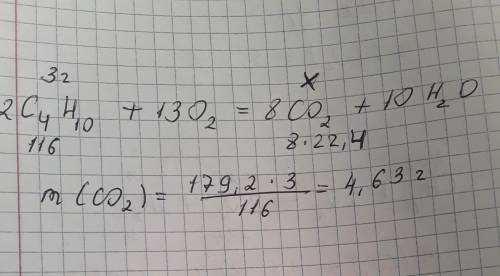 3г x
2C₄H₁₀ + 13O₂ = 8CO₂ + 10H₂O
116 8·22,4
m (CO₂) = 179,2·3/116 = 4,63г